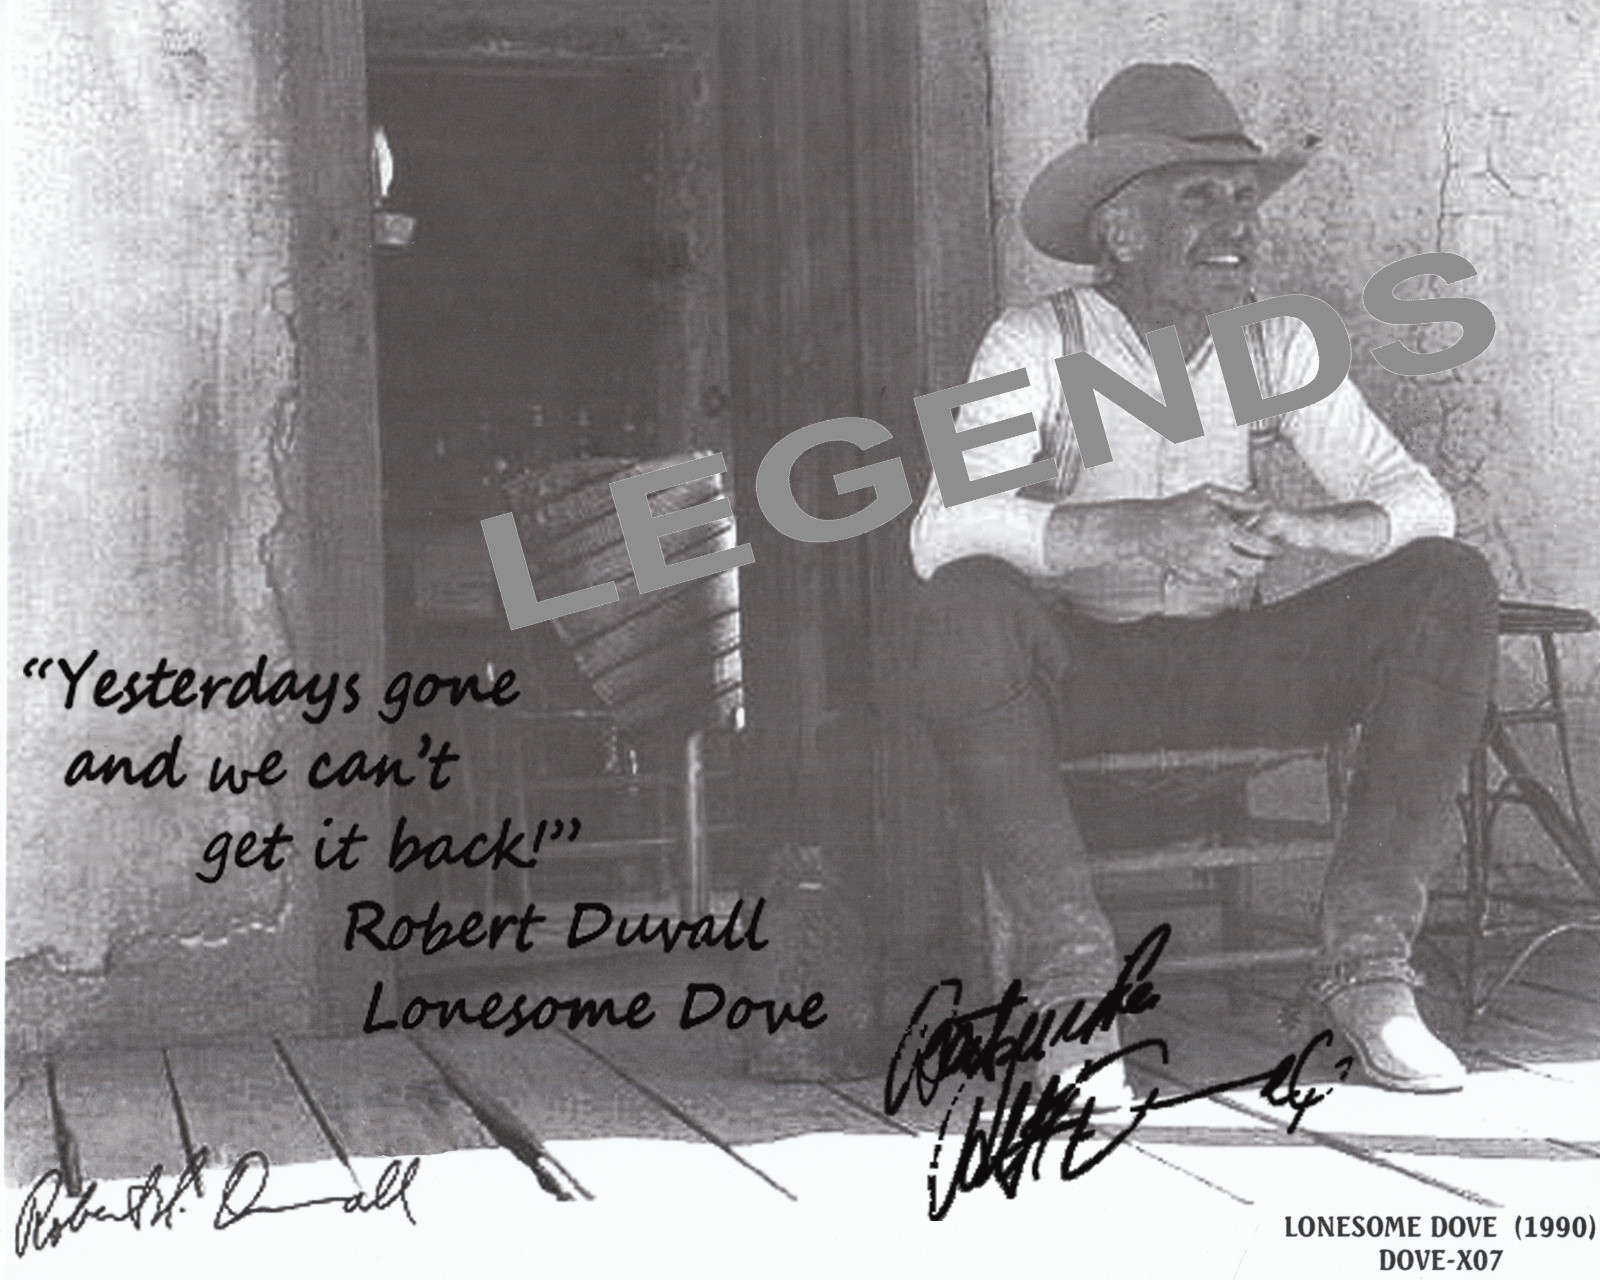 LEGENDS
“Yesterdays gone
and we can't
get it back!”
Robert Duvall
Lonesome Dove
Best wishes
Robert Duvall
LONESOME DOVE (1990)
DOVE-X07